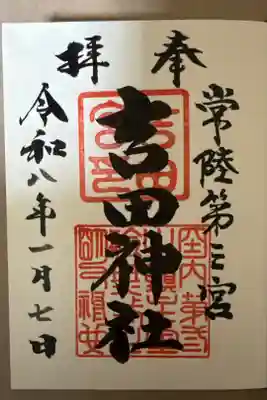 奉拝
常陸第三宮
吉田神社
令和八年一月七日